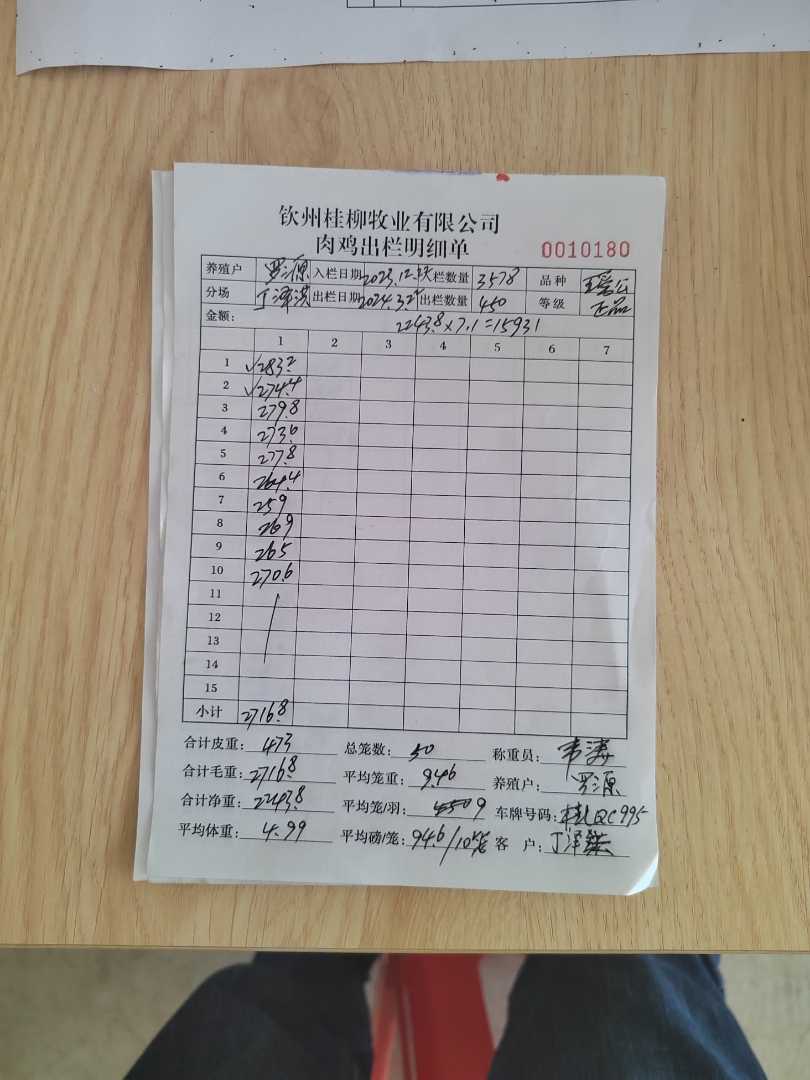 钦州桂柳牧业有限公司
肉鸡出栏明细单 0010180
养殖户 罗源 入栏日期 2023.12. 栏数量 3578 品种
分场 丁泽洪 出栏日期 2024.3.2 出栏数量 450 等级 正品
金额: 2243.8×7.1=15931
1 2 3 4 5 6 7
1 √283.2
2 √274.4
3 279.8
4 273.6
5 277.8
6 264.4
7 259
8 269
9 265
10 270.6
11
12
13
14
15
小计 2716.8
合计皮重: 473 总笼数: 50 称重员: 韦涛
合计毛重: 2716.8 平均笼重: 9.46 养殖户: 罗源
合计净重: 2243.8 平均笼/羽: 9 车牌号码: QC995
平均体重: 4.99 平均磅/笼: 94.6/10笼 客 户: 丁泽